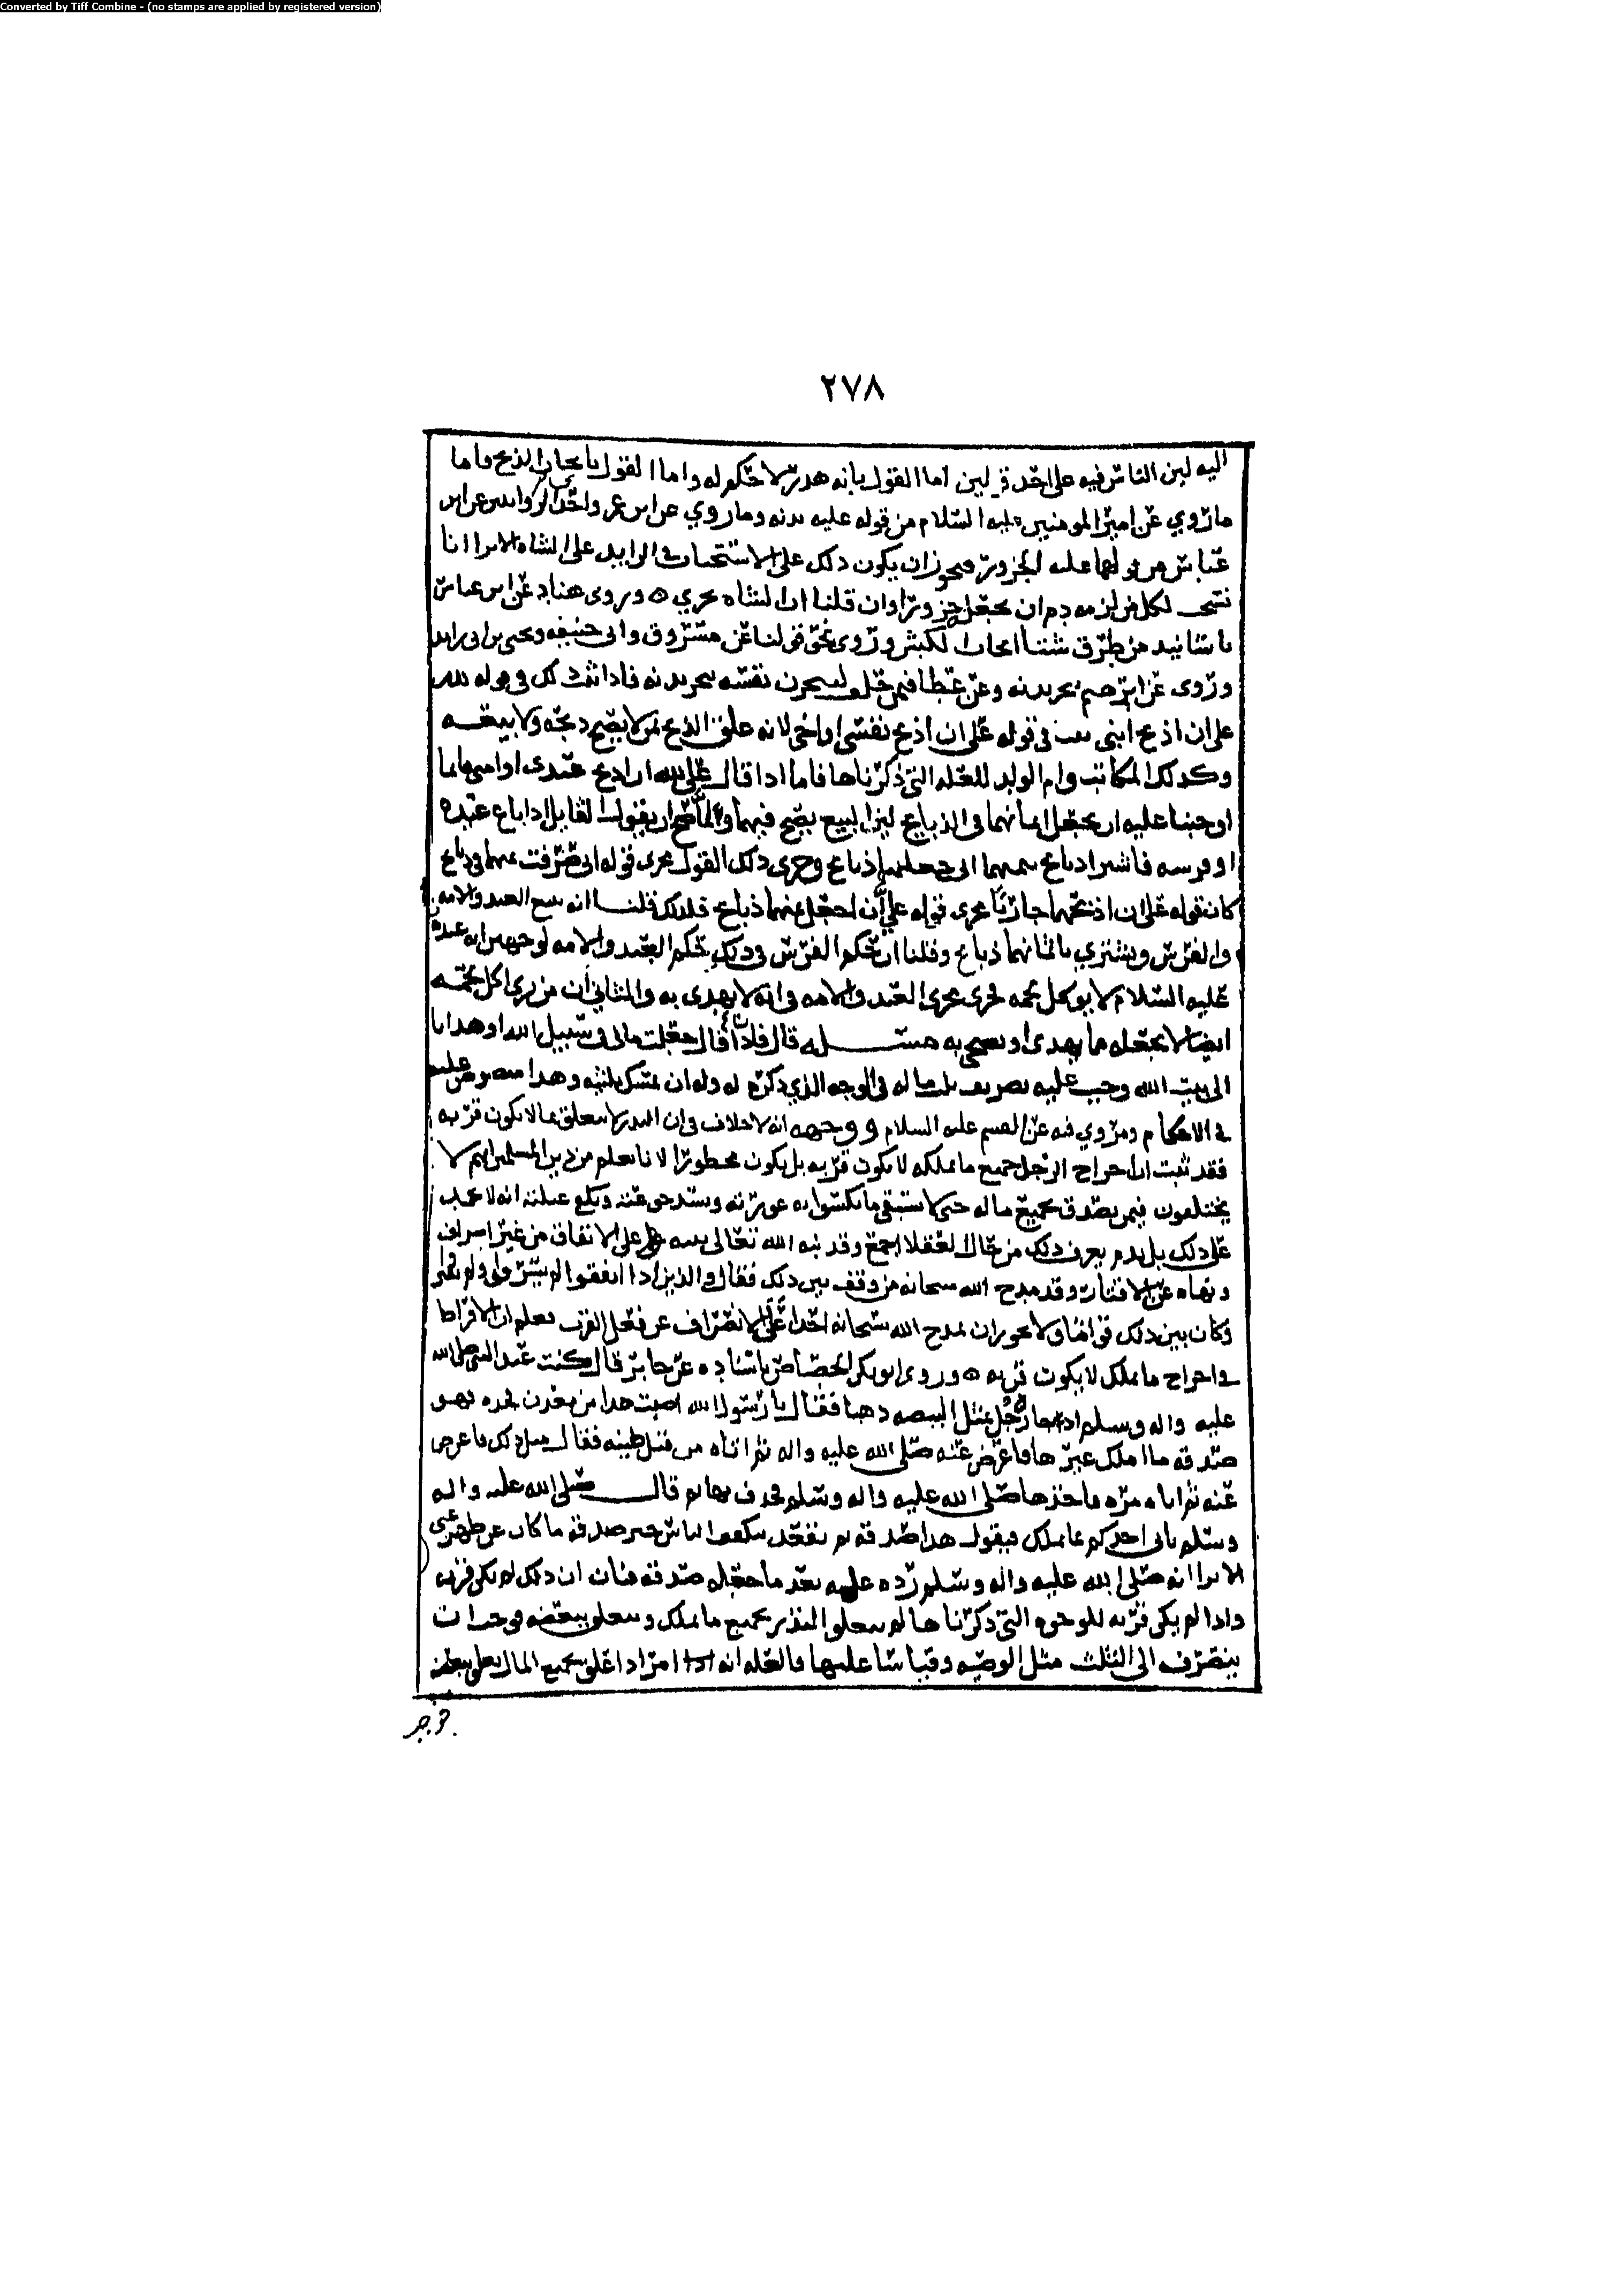 Converted by Tiff Combine - (no stamps are applied by registered version)
٢٧٨
اليه لين الناس فيه على احد قولين اما القول بانه هدر لا حكم له واما القول بايجاب الذبح واما
ما روي عن امير المومنين عليه السلام من قوله عليه بدنه وما روي عن ابن عمر واحدى الروايتين عن ابن
عباس من قولهما عليه الجزور فيجوز ان يكون ذلك على الاستحباب في الزايد على الشاه الا ترا انا
نستحب لكل من لزمه دم ان يجعل جزورا وان قلنا ان الشاه تجزي ٥ وروى هناد عن ابن عباس
باسانيد من طرق شتى ايجاب الكبش وروى نحو قولنا عن مسروق وابي حنيفه ويحيى بن ابي زايد
وروى عن ابرهيم نحر بدنه وعن عطا فيمن حلف لينحرن نفسه ينحر بدنه فاذا ثبت ذلك في قوله لله
على ان اذبح ابني ثبت في قوله على ان اذبح نفسي او اخي لانه علق الذبح بمن لا يصح ذبحه ولا بيعه
وكذلك المكاتب وام الولد للعله التي ذكرناها فاما اذا قال على لله ان اذبح عبدي او امتي فانما
اوجبنا عليه ان يجعل اثمانهما في الذبايح لين البيع يصح فيهما ان يقول القايل اذا باع عبده
او فرسه فاشترا ذبايح بثمنهما اني جعلتهما ذبايح وجرى ذلك القول مجرى قوله اني صرفت ثمنهما في ذبايح
كان قوله على ان اذبحهما جاريا مجرى قوله علي ان اجعل ثمنهما ذبايح فلذلك قلنا انه يبيع العبد والامه
والفرس ويشتري باثمانهما ذبايح وقلنا ان حكم الفرس في ذلك حكم العبد والامه لوجهين انه عنده
عليه السلام لا يوكل لحمه فجرى مجرى العبد والامه في انه لا يهدى به والثاني ان من يرى اكل لحمه
ايضا لا يجعله مما يهدى او يضحى به مسله قال فاذا قال جعلت مالي في سبيل الله او هدايا
الى بيت الله وجب عليه تصريف ثلث ماله في الوجه الذي ذكره له وله ان يمسك ثلثيه وهذا منصوص عليه
في الاحكام ومروي فيه عن القسم عليه السلام ووجهه انه لا خلاف في ان النذر لا يتعلق بما لا يكون قربه
فقد ثبت ان اخراج الرجل جميع ما يملكه لا يكون قربه بل يكون محظورا لانا نعلم من دين المسلمين انهم لا
يختلفون فيمن يصدق بجميع ماله حتى لا يستبقي ما يكسوا به عورته ويسد جوعته ويبلغ عيلته انه لا يحمد
على ذلك بل يذم يعرف ذلك من حال العقلا اجمع وقد نبه الله تعالى نبيه على الانفاق من غير اسراف
ونهاه عن الاقتار وقد مدح الله سبحانه من وقف بين ذلك فقال والذين اذا انفقوا لم يسرفوا ولم يقتروا
وكان بين ذلك قواما ولا يجوز ان يمدح الله سبحانه احدا على الانصراف عن فعل القرب فعلم ان الافراط
في اخراج ما يملك لا يكون قربه ٥ وروى ابو بكر الجصاص باسناده عن جابر قال كنت عند النبي صلى الله
عليه واله وسلم اذ جا رجل بمثل البيضه ذهبا فقال يا رسول الله اصبت هذا من معدن فخذه فهو
صدقه ما املك غيرها فاعرض عنه صلى الله عليه واله ثم اتاه من قبل يمينه فقال مثل ذلك فاعرض
عنه ثم اتاه مره فاخذها صلى الله عليه واله وسلم فحذف بها ثم قال صلى الله عليه واله
وسلم ياتي احدكم بما يملك فيقول هذا صدقه ثم يقعد يتكفف الناس خير صدقه ما كان عن ظهر غنى
الا ترا انه صلى الله عليه واله وسلم رده عليه بعد ما جعله صدقه فبان ان ذلك لم يكن قربه
واذا لم يكن قربه للوجوه التي ذكرناها لم يتعلق النذر بجميع ما يملك وتعلق ببعضه فوجب ان
ينصرف الى الثلث مثل الوصيه وقياسا عليها والعله انه امر اذا علق بجميع المال تعلق ببعضه